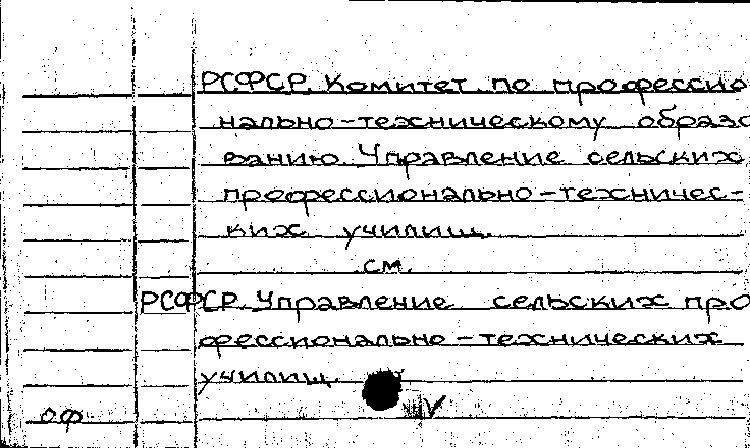 РСФСР. Комитет по профессио
нально-техническому образо
ванию. Управление сельских
профессионально-техничес-
ких училищ.
см.
РСФСР. Управление сельских про
фессионально-технических
училищ.
О.Ф